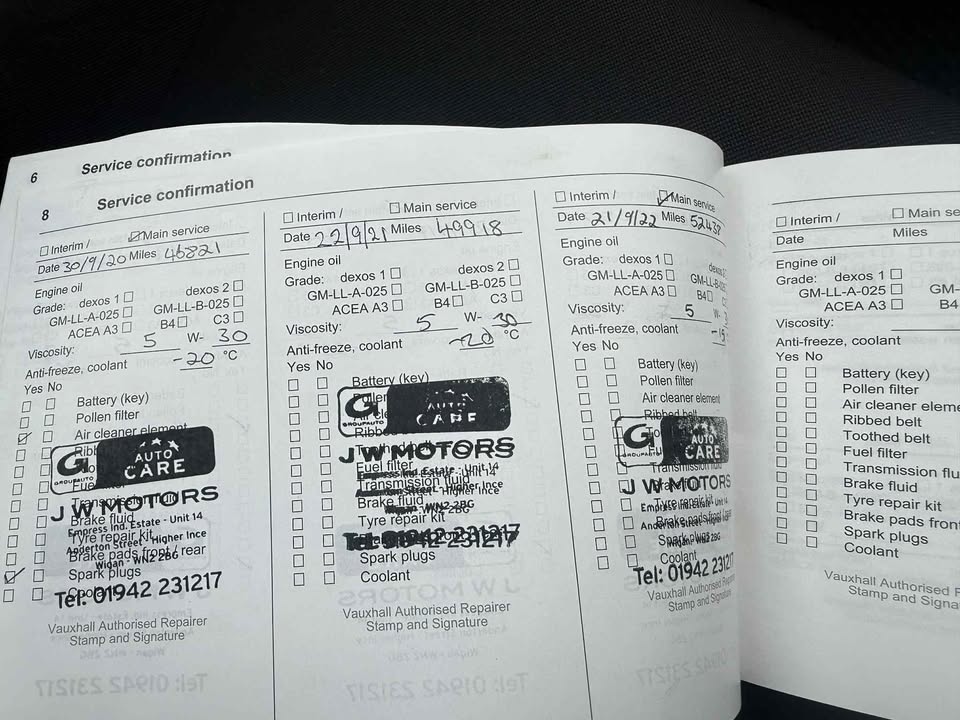 6 Service confirmation
8 Service confirmation
Interim / Main service
Date 30/9/20 Miles 46821
Engine oil
Grade: dexos 1 dexos 2
GM-LL-A-025 GM-LL-B-025
ACEA A3 B4 C3
Viscosity: 5 W- 30
Anti-freeze, coolant -20 °C
Yes No
Battery (key)
Pollen filter
Air cleaner element
G GROUPAUTO AUTO CARE
Transmission fluid
J W MOTORS
Brake fluid
Empress Ind. Estate - Unit 14
Tyre repair kit
Anderton Street - Higher Ince
Brake pads front / rear
Wigan - WN2 2BG
Spark plugs
Coolant
Tel: 01942 231217
Vauxhall Authorised Repairer
Stamp and Signature
Interim / Main service
Date 22/9/21 Miles 49918
Engine oil
Grade: dexos 1 dexos 2
GM-LL-A-025 GM-LL-B-025
ACEA A3 B4 C3
Viscosity: 5 W- 30
Anti-freeze, coolant -20 °C
Yes No
Battery (key)
G GROUPAUTO AUTO CARE
J W MOTORS
Fuel filter
Empress Ind. Estate - Unit 14
Transmission fluid
Anderton Street - Higher Ince
Brake fluid
Wigan - WN2 2BG
Tyre repair kit
Tel: 01942 231217
Spark plugs
Coolant
Vauxhall Authorised Repairer
Stamp and Signature
Interim / Main service
Date 21/9/22 Miles
Engine oil
Grade: dexos 1
GM-LL-A-025 GM-LL-B-025
ACEA A3 B4
Viscosity: 5 W-
Anti-freeze, coolant
Yes No
Battery (key)
Pollen filter
Air cleaner element
Ribbed belt
G GROUPAUTO AUTO CARE
Transmission fluid
J W MOTORS
Tyre repair kit
Empress Ind. Estate - Unit 14
Anderton Street - Higher Ince
Wigan - WN2 2BG
Spark plugs
Coolant
Tel: 01942 231217
Vauxhall Authorised Repairer
Stamp and Signature
Interim / Main se
Date Miles
Engine oil
Grade: dexos 1
GM-LL-A-025 GM-
ACEA A3 B4
Viscosity:
Anti-freeze, coolant
Yes No
Battery (key)
Pollen filter
Air cleaner eleme
Ribbed belt
Toothed belt
Fuel filter
Transmission flu
Brake fluid
Tyre repair kit
Brake pads front
Spark plugs
Coolant
Vauxhall Authorised R
Stamp and Signa